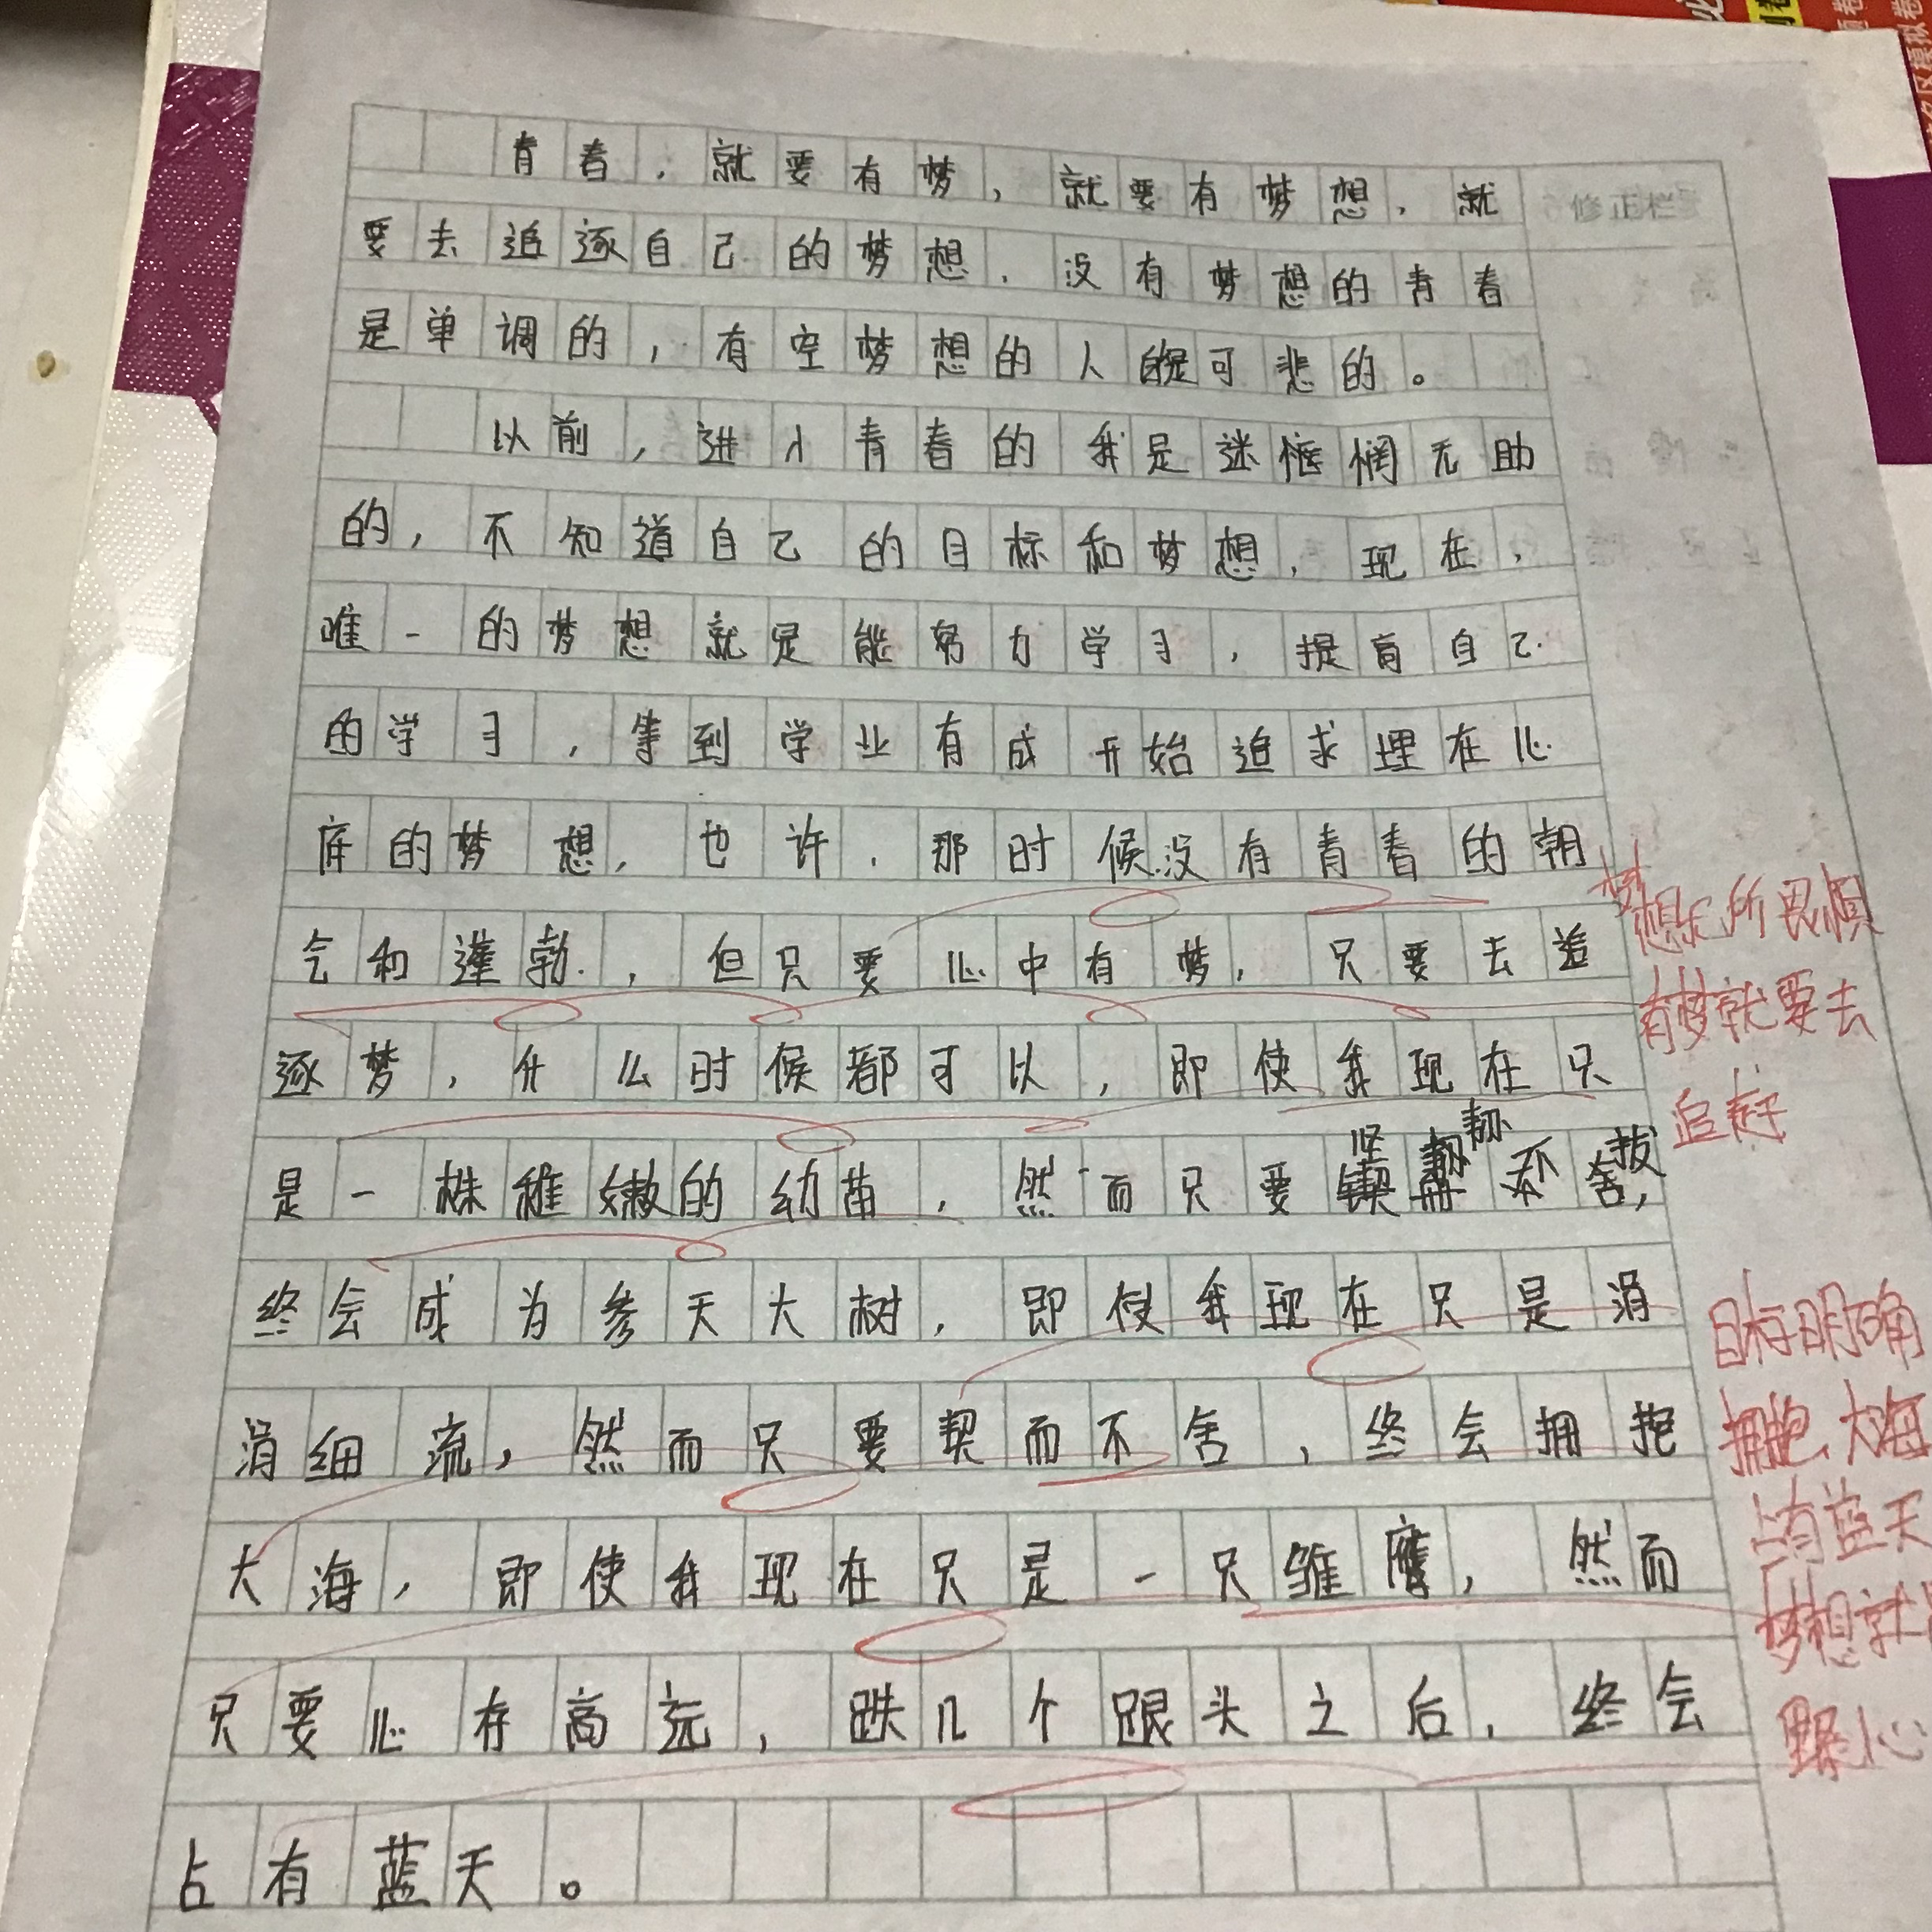 青春，就要有梦，就要有梦想，就
修正栏
要去追逐自己的梦想．没有梦想的青春
是单调的，有空梦想的人是可悲的。
以前，进入青春的我是迷惘无助
的，不知道自己的目标和梦想，现在，
唯一的梦想就是能努力学习，提高自己
的学习，等到学业有成开始追求埋在心
底的梦想，也许．那时候没有青春的朝
气和蓬勃，但只要心中有梦，只要去追
逐梦，什么时候都可以，即使我现在只
是一株稚嫩的幼苗，然而只要坚韧不拔，
终会成为参天大树，即使我现在只是涓
涓细流，然而只要契而不舍，终会拥抱
大海，即使我现在只是一只雏鹰，然而
只要心存高远，跌几个跟头之后，终会
占有蓝天。
梦想无所畏惧
有梦就要去
追赶
目标明确
拥抱大海
占有蓝天
梦想就
野心